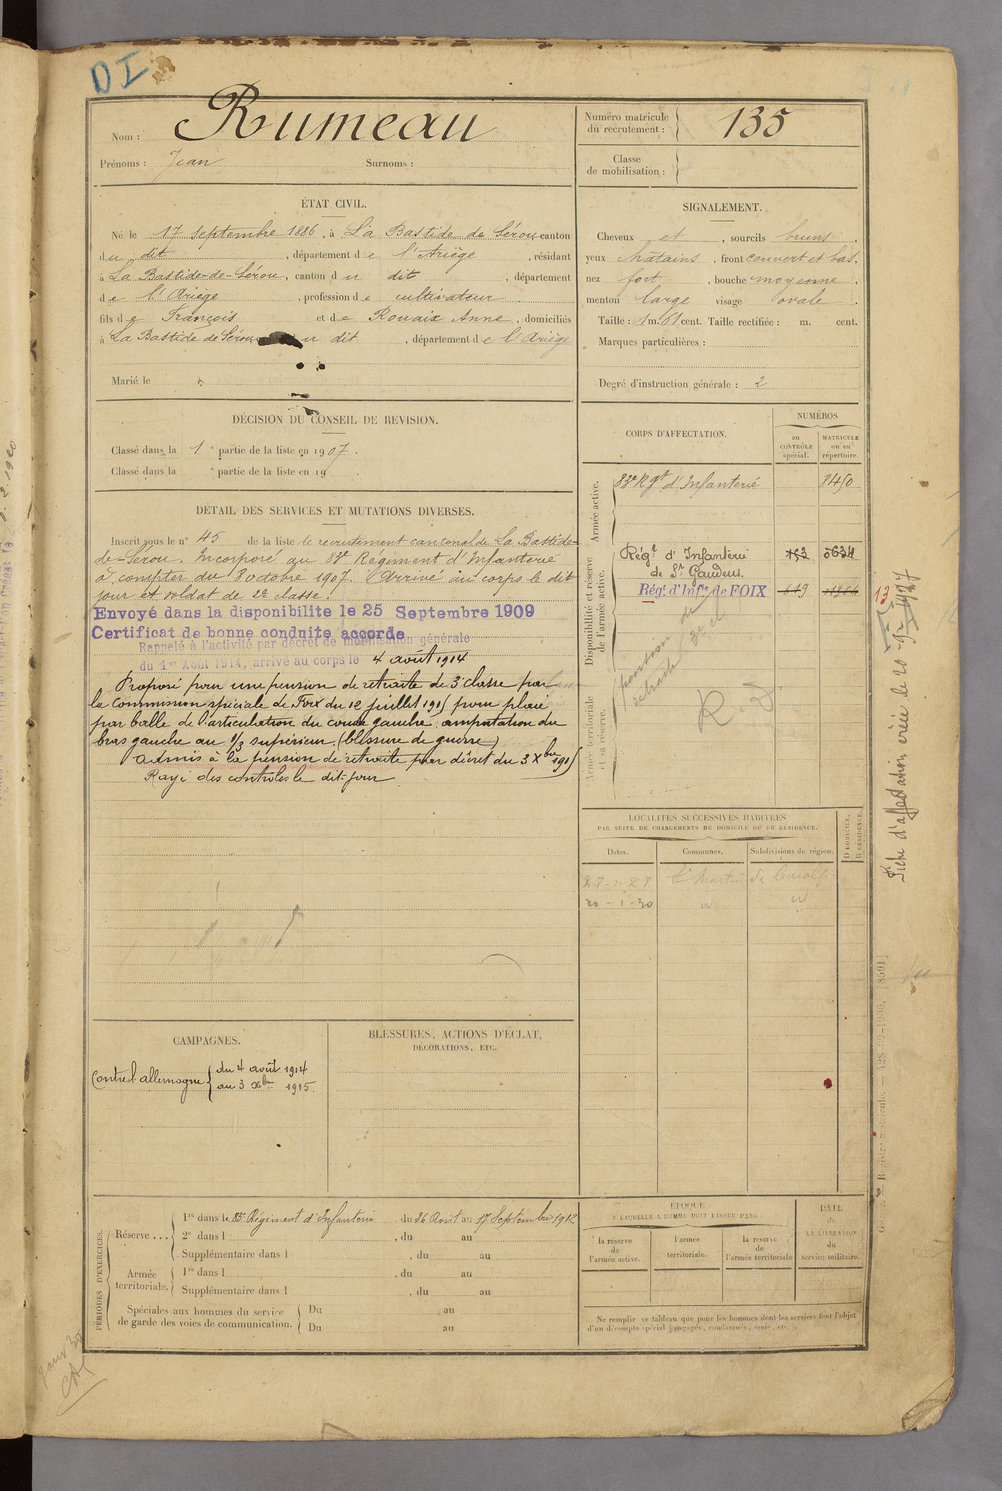 DI
Nom : Rumeau
Prénoms : Jean Surnoms :
Numéro matricule
du recrutement : 135
Classe
de mobilisation :
ÉTAT CIVIL.
Né le 17 Septembre 1886, à La Bastide de Sérou canton
du dit, département de l'Ariège, résidant
à La Bastide-de-Sérou, canton du dit, département
de l'Ariège, profession de cultivateur
fils de François et de Rouaix Anne, domiciliés
à La Bastide de Sérou u dit, département de l'Ariège
Marié le
SIGNALEMENT.
Cheveux et, sourcils bruns,
yeux châtains, front couvert et bas,
nez fort, bouche moyenne,
menton large visage ovale.
Taille : 1 m. 61 cent. Taille rectifiée : m. cent.
Marques particulières :
Degré d'instruction générale : 2
DÉCISION DU CONSEIL DE REVISION.
Classé dans la 1e partie de la liste en 1907.
Classé dans la e partie de la liste en 19
DÉTAIL DES SERVICES ET MUTATIONS DIVERSES.
Inscrit sous le n° 45 de la liste le recrutement cantonal de La Bastide-
de-Sérou. Incorporé au 83e Régiment d'Infanterie
à compter du 8 octobre 1907. Arrivé au corps le dit
jour et soldat de 2e classe.
Envoyé dans la disponibilite le 25 Septembre 1909
Certificat de bonne conduite accorde
Rappelé à l'activité par décret de mobilisation générale
du 1er Août 1914, arrivé au corps le 4 août 1914
Proposé pour une pension de retraite de 3e classe par
la Commission spéciale de Foix du 12 juillet 1915 pour plaie
par balle de l'articulation du coude gauche, amputation du
bras gauche au 1/3 supérieur. (blessure de guerre)
Admis à la pension de retraite par décret du 3 Xbre 1915
Rayé des contrôles le dit jour
CORPS D'AFFECTATION.
NUMÉROS
au
CONTRÔLE
spécial.
MATRICULE
ou au
répertoire.
Armée active.
83e Rgt d'Infanterie 8450
Disponibilité et réserve
de l'armée active.
Régt d'Infanterie
de St Gaudens.
Régt d'Infie de FOIX
pension de
retraite 3e cl
Armée territoriale
et sa réserve.
LOCALITÉS SUCCESSIVES HABITÉES
PAR SUITE DE CHANGEMENTS DE DOMICILE OU DE RÉSIDENCE.
Dates. Communes. Subdivisions de région. D DOMICILE. R RÉSIDENCE.
20 - 1 - 30
13
Fiche d'affectation créée le 20-9-1927
CAMPAGNES.
Contre l'allemagne du 4 août 1914
au 3 Xbre 1915.
BLESSURES, ACTIONS D'ÉCLAT,
DÉCORATIONS, ETC.
PÉRIODES D'EXERCICES.
Réserve...
1re dans le 83e Régiment d'Infanterie du 26 Août au 17 Septembre 1912
2e dans l , du au
Supplémentaire dans l , du au
Armée
territoriale.
1re dans l , du au
Supplémentaire dans l , du au
Spéciales aux hommes du service
de garde des voies de communication.
Du au
Du au
ÉPOQUE
À LAQUELLE L'HOMME DOIT PASSER DANS
la réserve
de
l'armée active.
l'armée
territoriale.
la réserve
de
l'armée territoriale
DATE
de
LA LIBÉRATION
du
service militaire.
Ne remplir ce tableau que pour les hommes dont les services font l'objet
d'un décompte spécial (engagés, condamnés, omis, etc.).